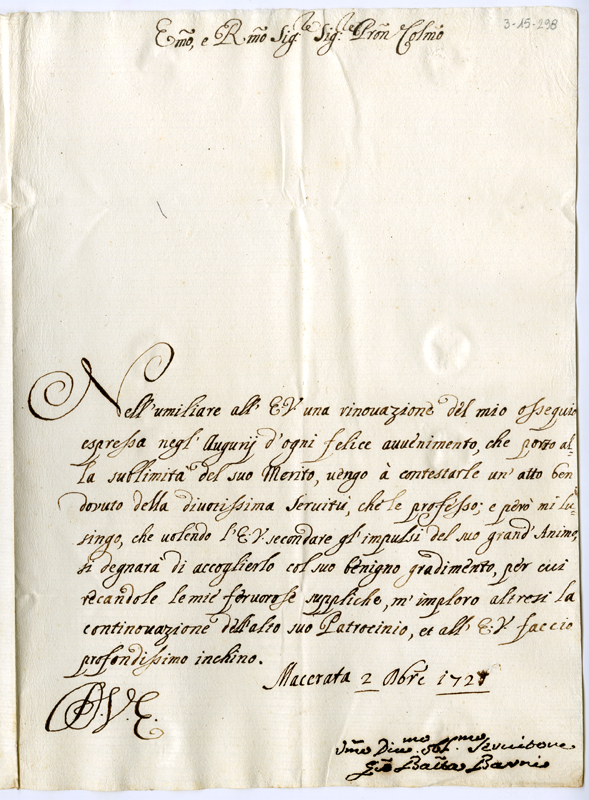 3-15-298
Emo, e Rmo Sig.re Sig.re Pron Colmo
Nell' umiliare all' E.V. una rinouazione del mio ossequio
espressa negl' Augurij d'ogni felice auuenimento, che porto al-
la sublimità del suo Merito, uengo à contestarle un' atto ben
douuto della diuotissima Seruitù, che le professo; e però mi lu-
singo, che uolendo l'E.V. secondare gl' impulsi del suo grand' Animo,
si degnarà di accoglierlo col suo benigno gradimento, per cui
recandole le mie feruorose suppliche, m' imploro altresi la
continouazione dell' alto suo Patrocinio, et all' E.V. faccio
profondissimo inchino.
Macerata 2 Xbre
D. V. E.
Umo Diuo.mo Obl.mo Seruitore
Gio Batta